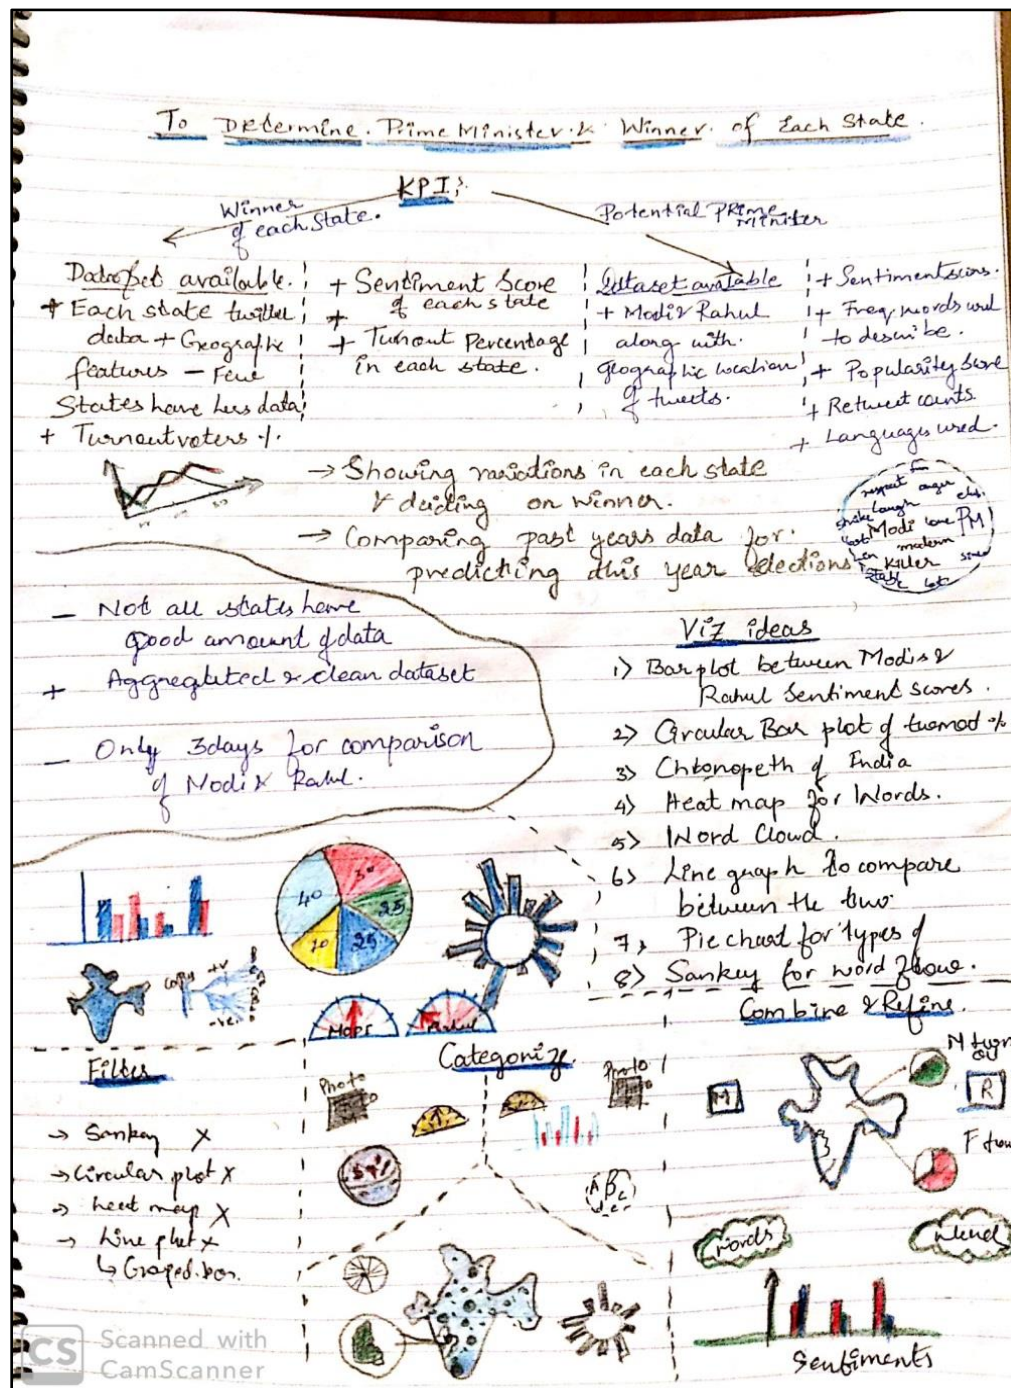 To Determine Prime Minister & Winner of Each State.
KPI's
Winner
of each state.
Potential PRime
Miniter
Dataset available.
+ Each state twitter
data + Geographic
features - Few
States have less data
+ Turnout voters %.
+ Sentiment Score
of each state
+
+ Turnout Percentage
in each state.
Dataset available
+ Modi & Rahul
along with
geographic location
of tweets.
+ Sentiment scors.
+ Freq. words used
to describe.
+ Popularity Score
+ Retweet counts
+ Languages used.
→ Showing variations in each state
& deciding on winner.
→ Comparing past years data for
predicting this year elections
respect anger
laugh
Modi love PM
modern
Killer
- Not all states have
good amount of data
+ Aggregated & clean dataset
- Only 3 days for comparison
of Modi & Rahul.
Viz ideas
1> Barplot between Modi &
Rahul Sentiment Scores.
2> Circular Bar plot of turnout %
3> Choropeth of India
4> Heat map for Words.
5> Word Cloud.
6> Line graph to compare
between the two.
7> Pie chart for types of
8> Sankey for word flow.
40
30
25
25
20
+ve
-ve
Rahul
Filter
→ Sankey X
→ Circular plot X
→ heat map X
→ Line plot X
↳ Groped bar.
Categorize
Photo
Photo
A B c
d e
Combine & Refine.
M
R
words
Sentiments
CS
Scanned with
CamScanner